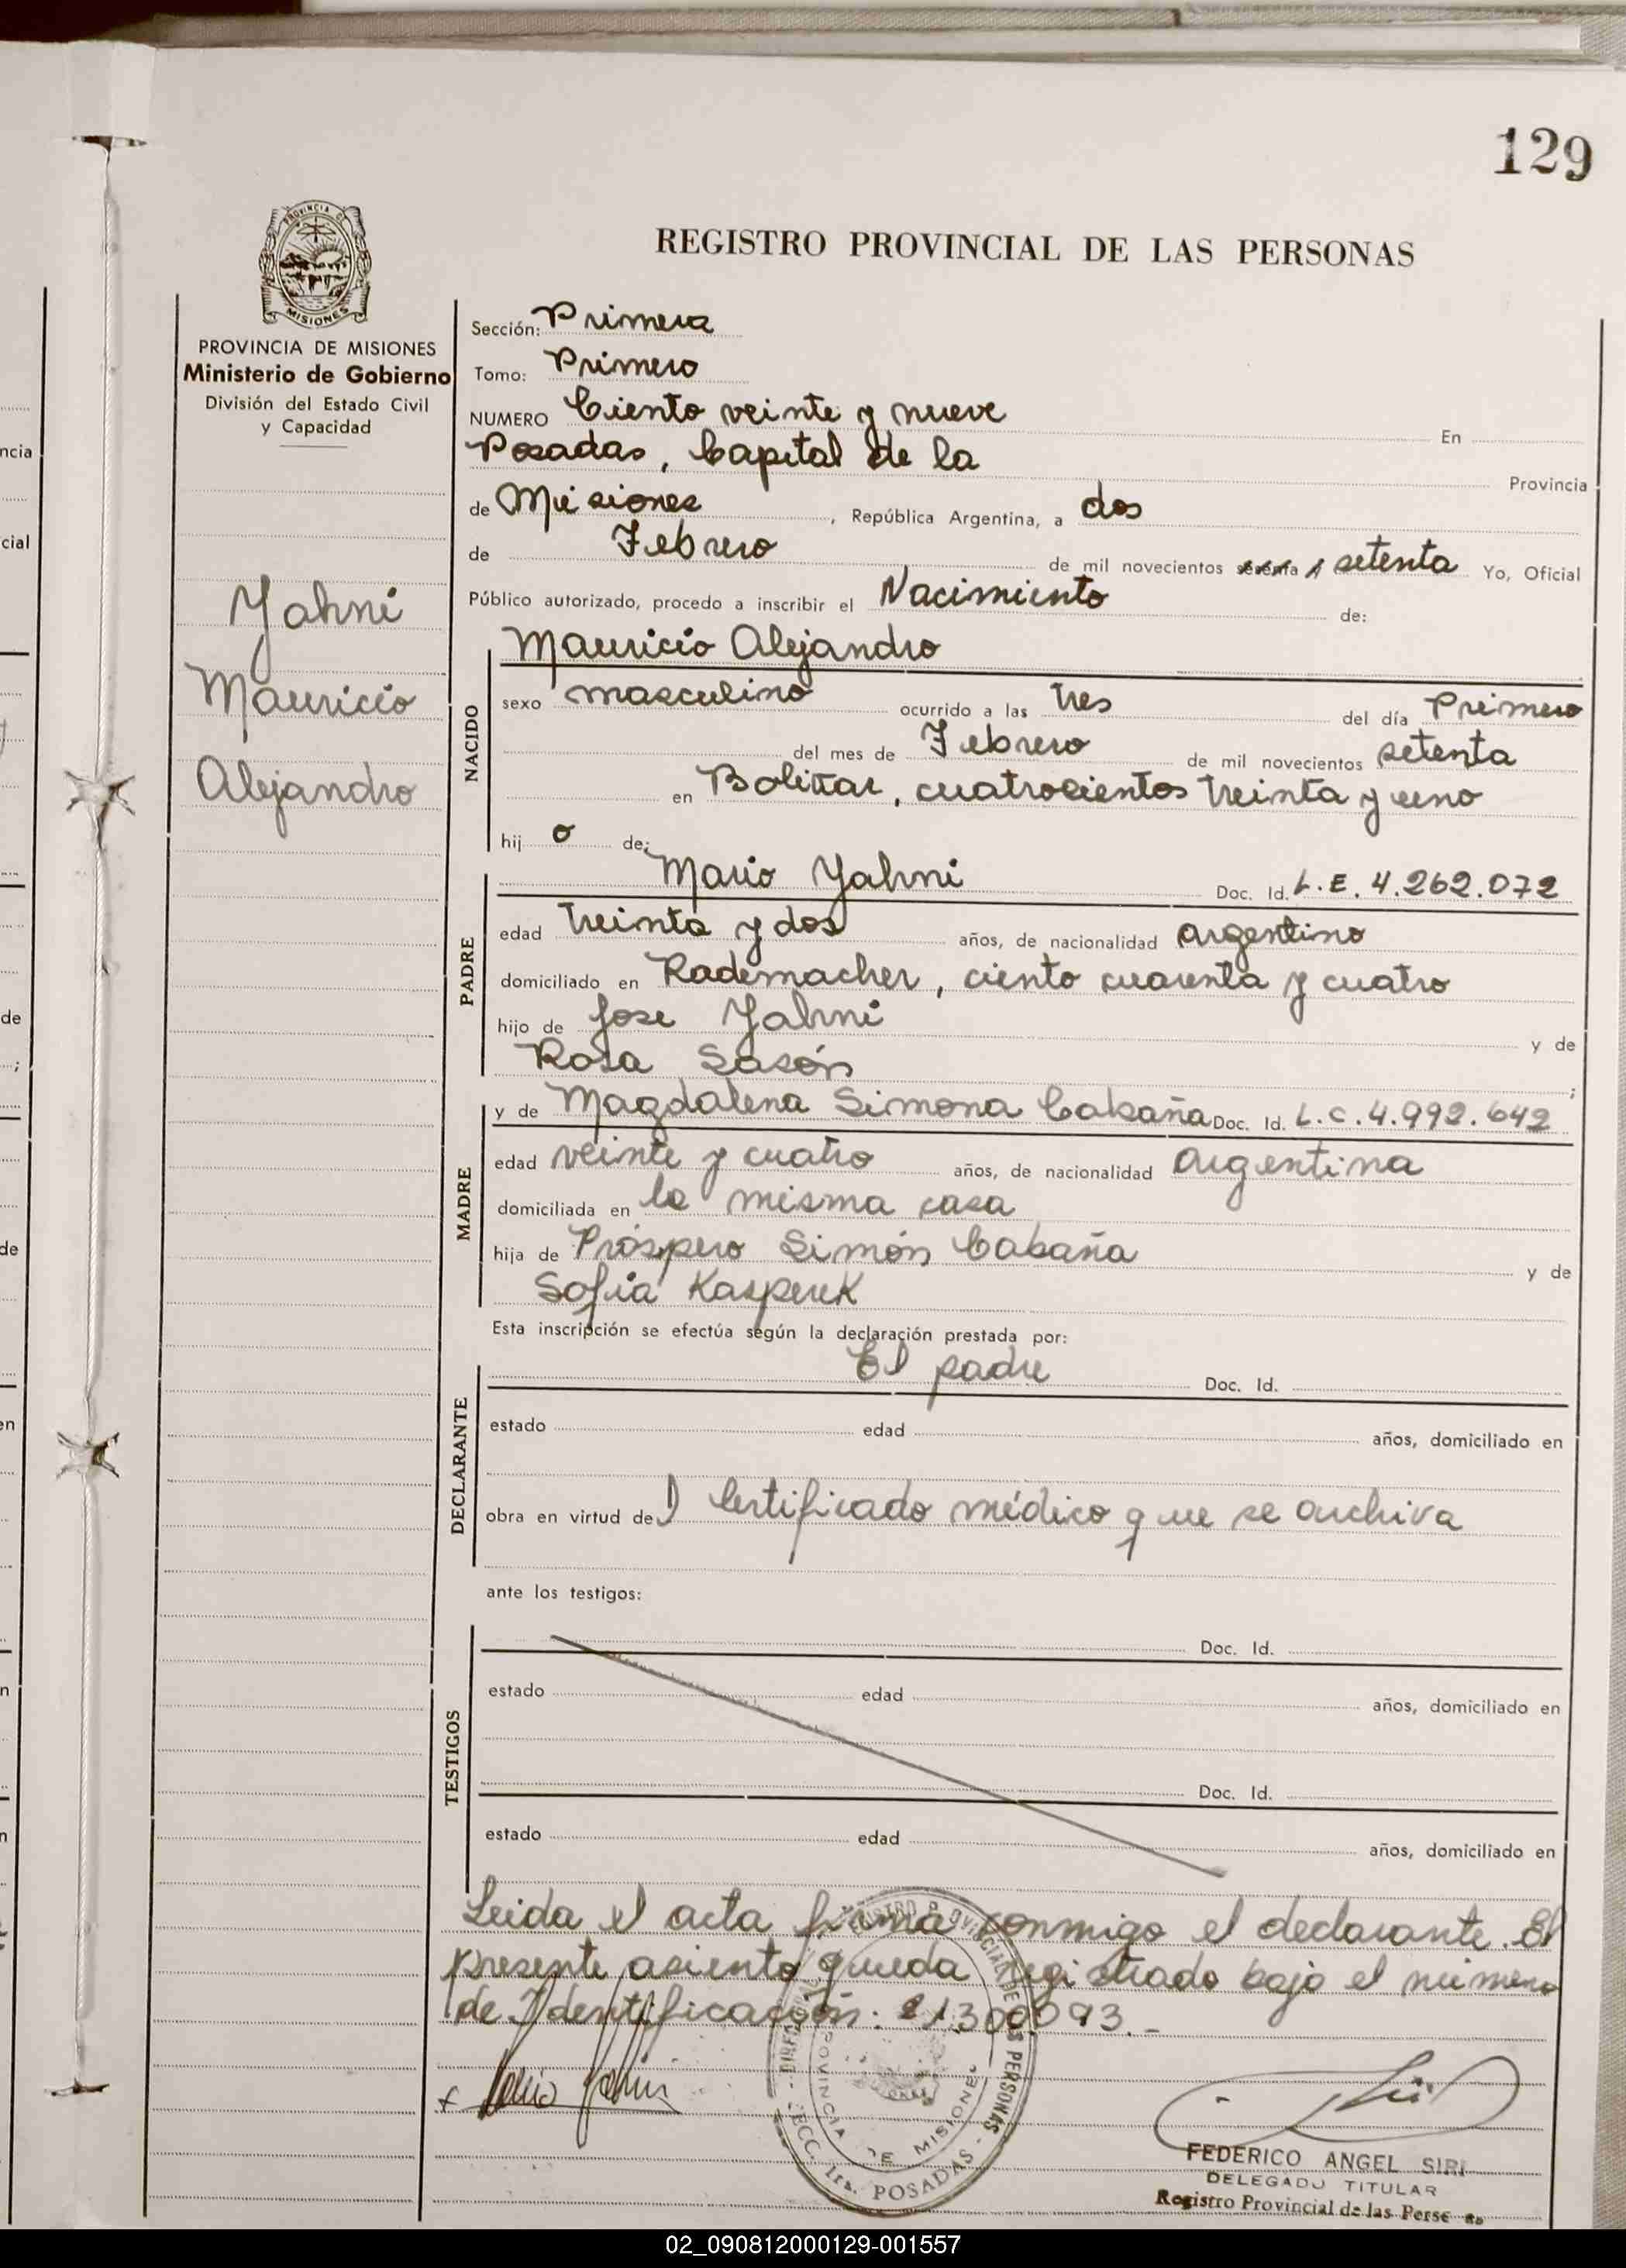 129
REGISTRO PROVINCIAL DE LAS PERSONAS
PROVINCIA DE MISIONES
Ministerio de Gobierno
División del Estado Civil
y Capacidad
Yahni
Mauricio
Alejandro
Sección: Primera
Tomo: Primero
NUMERO Ciento veinte y nueve En
Posadas, Capital de la Provincia
de Misiones, República Argentina, a dos
de Febrero de mil novecientos setenta Yo, Oficial
Público autorizado, procedo a inscribir el Nacimiento de:
NACIDO
Mauricio Alejandro
sexo masculino ocurrido a las tres del día Primero
del mes de Febrero de mil novecientos setenta
en Bolivar, cuatrocientos treinta y uno
hijo de:
PADRE
Mario Yahni Doc. Id. L.E. 4.262.072
edad treinta y dos años, de nacionalidad argentino
domiciliado en Rademacher, ciento cuarenta y cuatro
hijo de Jose Yahni y de
Rosa Sasón;
MADRE
y de Magdalena Simona Cabaña Doc. Id. L.C. 4.992.642
edad veinte y cuatro años, de nacionalidad argentina
domiciliada en la misma casa
hija de Próspero Simón Cabaña y de
Sofia Kasperek
Esta inscripción se efectúa según la declaración prestada por:
DECLARANTE
El padre Doc. Id.
estado edad años, domiciliado en
obra en virtud de Certificado médico que se archiva
ante los testigos:
TESTIGOS
Doc. Id.
estado edad años, domiciliado en
Doc. Id.
estado edad años, domiciliado en
Leida el acta firma conmigo el declarante. El
presente asiento queda registrado bajo el número
de Identificación: 21.300.093.-
Mario Yahni
FEDERICO ANGEL SIRI
DELEGADO TITULAR
Registro Provincial de las Perso
PROVINCIA DE MISIONES
SECC. 1ra. POSADAS
02_090812000129-001557